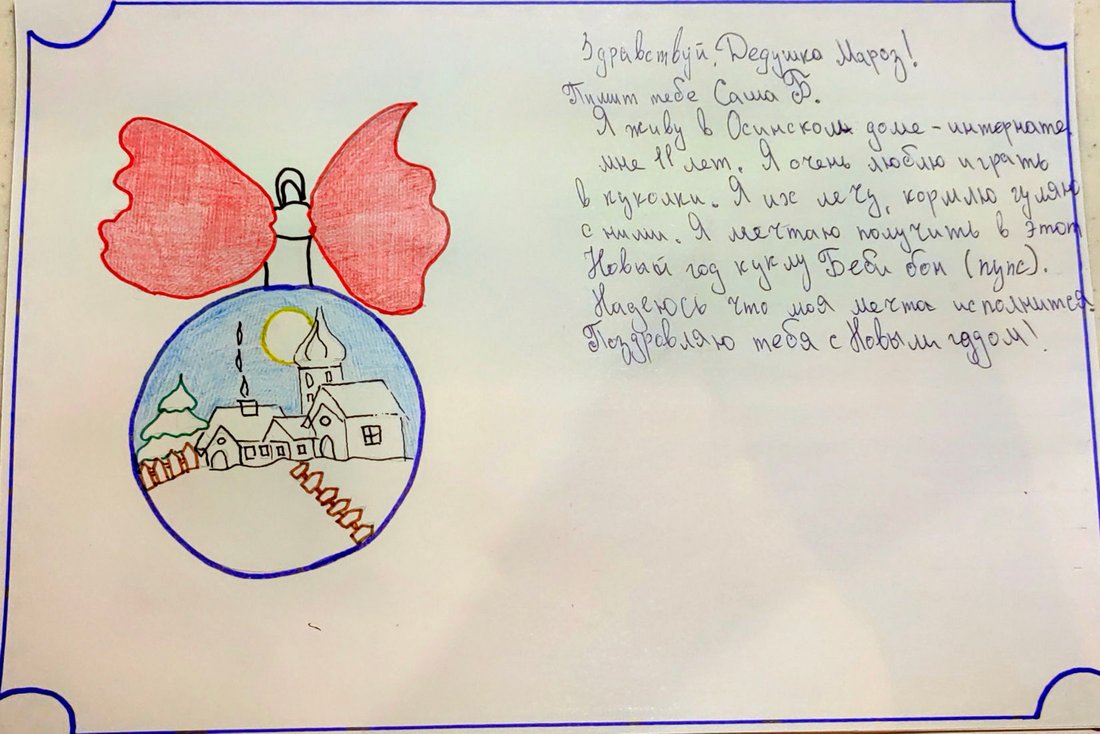 Здравствуй, Дедушка Мароз!
Пишит тебе Саша Б.
Я живу в Осинском доме-интернате
мне 11 лет. Я очень люблю играть
в куколки. Я их лечу, кормлю гуляю
с ними. Я мечтаю получить в этот
Новый год куклу Беби бон (пупс).
Надеюсь что моя мечта исполнится.
Поздравляю тебя с Новым годом!